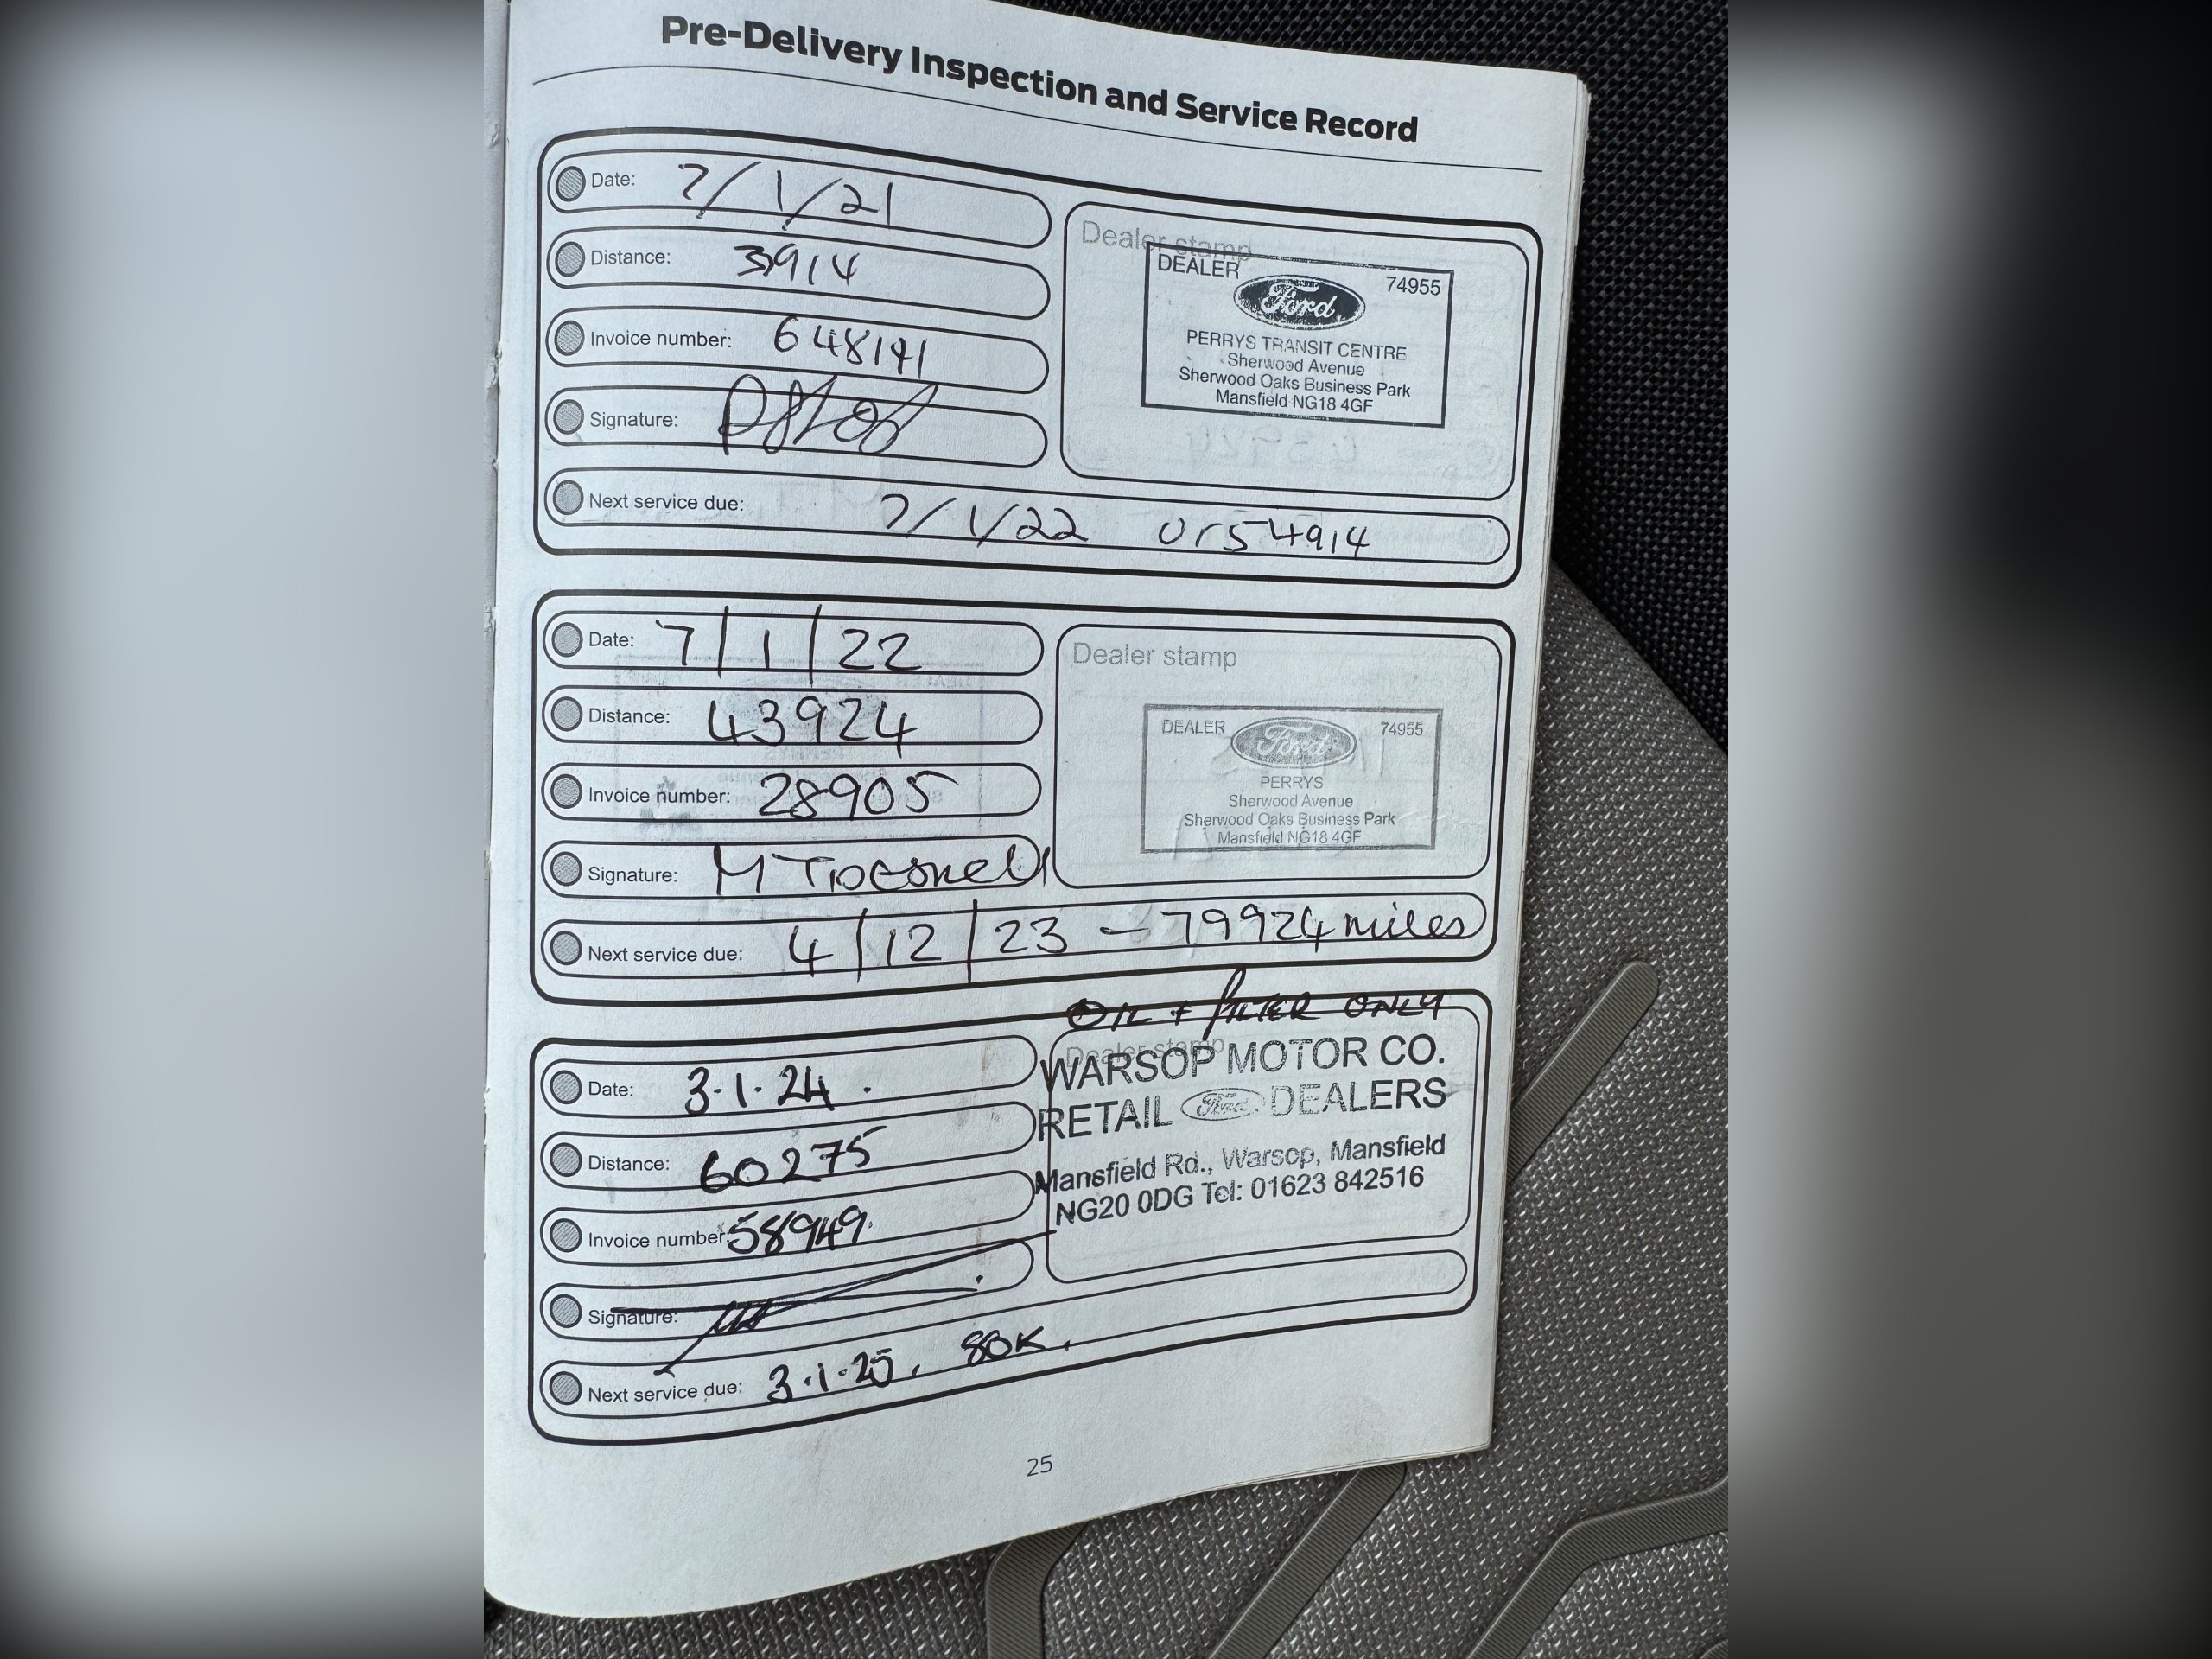 Pre-Delivery Inspection and Service Record
Date: 7/1/21
Distance: 3914
Invoice number: 648141
Signature:
Next service due: 7/1/22 or 54914
Dealer stamp
DEALER 74955
Ford
PERRYS TRANSIT CENTRE
Sherwood Avenue
Sherwood Oaks Business Park
Mansfield NG18 4GF
Date: 7/1/22
Distance: 43924
Invoice number: 28905
Signature:
Next service due: 4/12/23 - 79924 miles
Dealer stamp
DEALER 74955
Ford
PERRYS
Sherwood Avenue
Sherwood Oaks Business Park
Mansfield NG18 4GF
OIL + FILTER ONLY
Date: 3.1.24.
Distance: 60275
Invoice number: 58949.
Signature:
Next service due: 3.1.25. 80K.
Dealer stamp
WARSOP MOTOR CO.
RETAIL Ford DEALERS
Mansfield Rd., Warsop, Mansfield
NG20 0DG Tel: 01623 842516
25